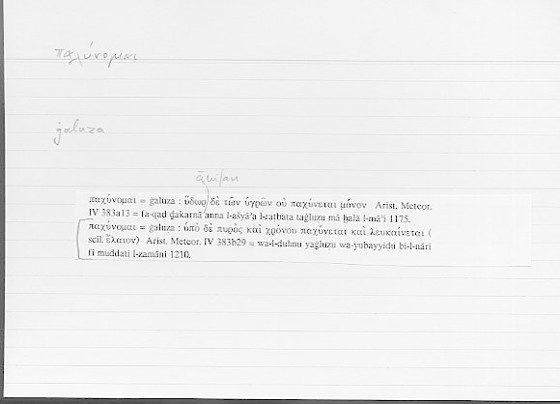 παχύνομαι
ġaluẓa
παχύνομαι = ġaluẓa : ὕδωρ δὲ τῶν ὑγρῶν οὐ παχύνεται μόνον Arist. Meteor.
IV 383a13 = fa-qad ḏakarnā anna l-ašyā'a l-raṭbata taġluẓu mā ḫalā l-mā'i 1175.
παχύνομαι = ġaluẓa : ὑπὸ δὲ πυρὸς καὶ χρόνου παχύνεται καὶ λευκαίνεται (
scil. ἔλαιον) Arist. Meteor. IV 383b29 = wa-l-duhnu yaġluẓu wa-yubayyiḍu bi-l-nāri
fī muddati l-zamāni 1210.